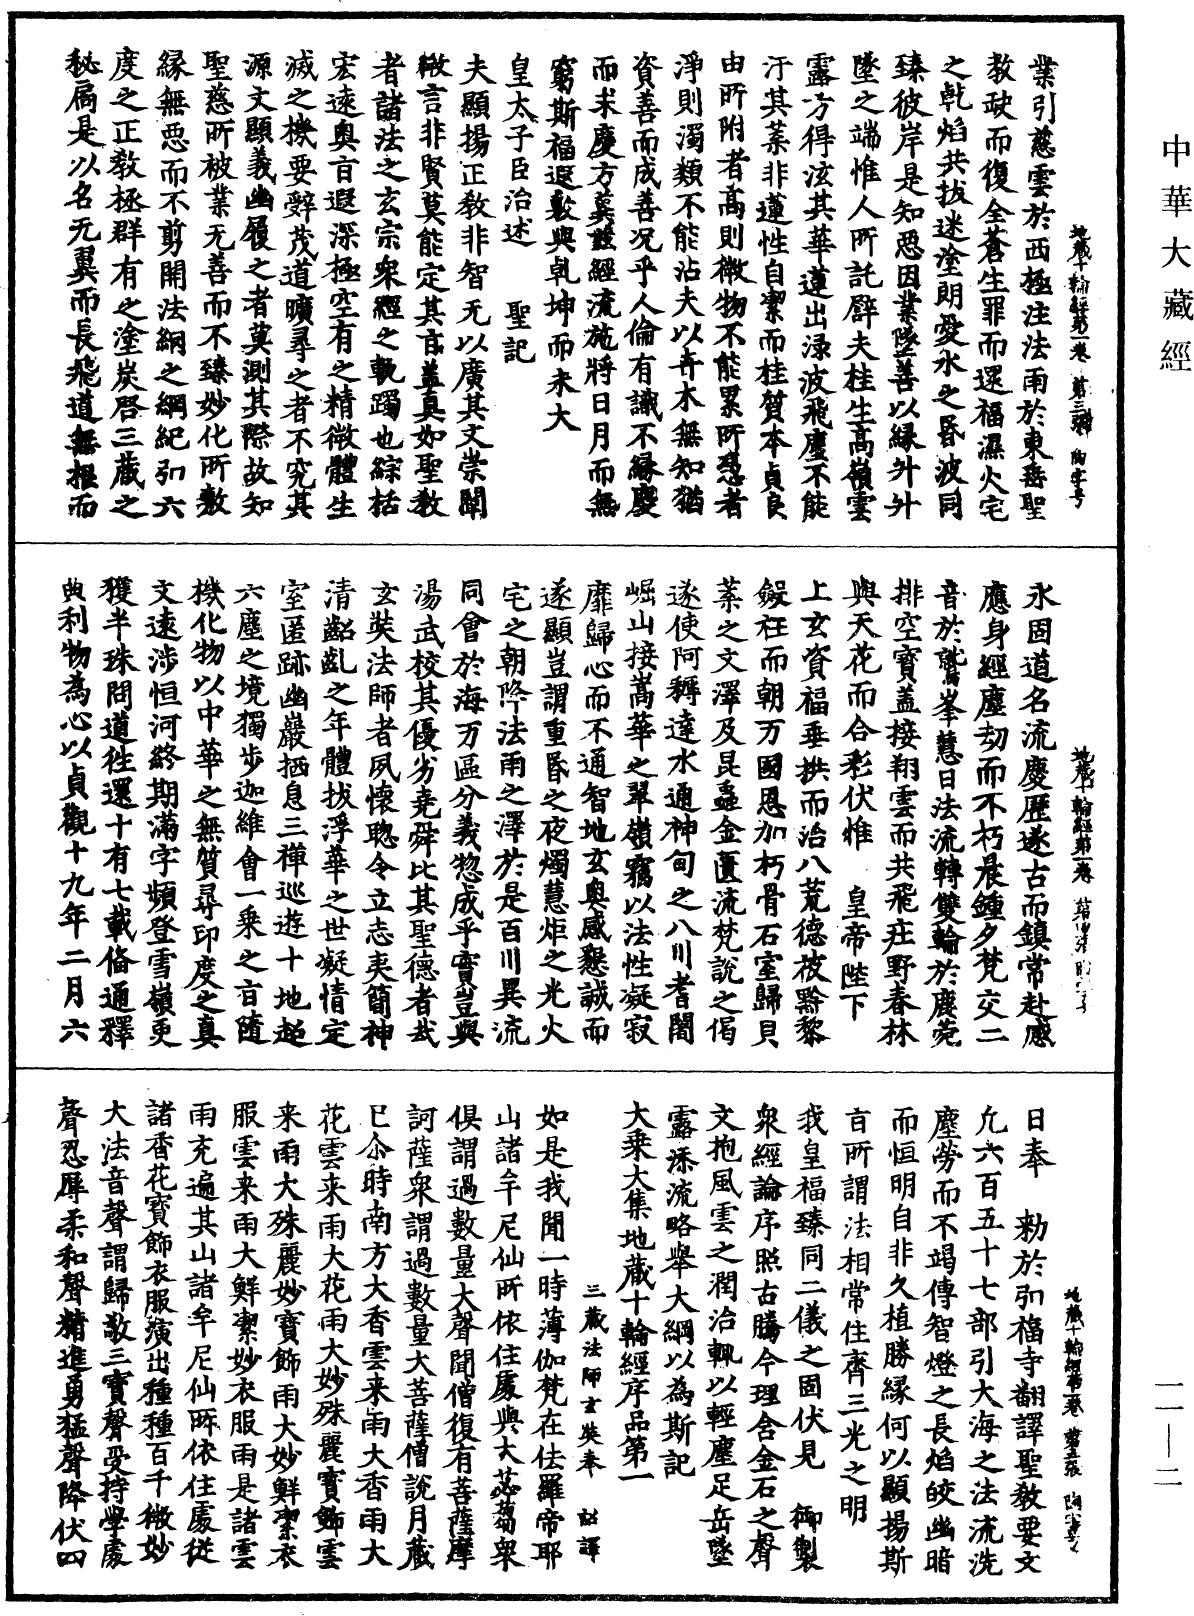 中華大藏經
地藏十輪經第一卷 第三張 陶字号
業引慈雲於西極注法雨於東垂聖
教䟦而復全蒼生罪而還福濕火宅
之乾焰共拔迷塗朗愛水之昏波同
臻彼岸是知惡因業墜善以緣升升
墜之端惟人所託譬夫桂生高嶺雲
露方得泫其華蓮出渌波飛塵不能
汙其葉非蓮性自潔而桂質本貞良
由所附者高則微物不能累所憑者
淨則濁類不能沾夫以卉木無知猶
資善而成善況乎人倫有識不緣慶
而求慶方冀茲經流施將日月而無
窮斯福遐敷與乹坤而永大
皇太子臣治述 聖記
夫顯揚正教非智无以廣其文崇闡
微言非賢莫能定其旨盖真如聖教
者諸法之玄宗衆經之軌躅也綜括
宏遠奧旨遐深極空有之精微體生
滅之機要辤茂道曠尋之者不究其
源文顯義幽履之者莫測其際故知
聖慈所被業无善而不臻妙化所敷
緣無惡而不剪開法綱之綱紀弘六
度之正教極群有之塗炭啓三藏之
秘扃是以名无翼而長飛道無根而
地藏十輪經第一卷
永固道名流慶歷遂古而鎮常赴感
應身經塵刼而不朽晨鍾夕梵交二
音於鷲峯慧日法流轉雙輪於鹿菀
排空寶盖接翔雲而共飛莊野春林
與天花而合彩伏惟 皇帝陛下
上玄資福垂拱而治八荒德被黔黎
斂衽而朝万國恩加朽骨石室歸貝
葉之文澤及昆蟲金匱流梵說之偈
遂使阿耨達水通神甸之八川耆闍
崛山接嵩華之翠嶺竊以法性凝寂
靡歸心而不通智地玄奧感懇誠而
遂顯豈謂重昏之夜燭慧炬之光火
宅之朝降法雨之澤於是百川異流
同會於海万區分義惣成乎實豈與
湯武校其優劣堯舜比其聖德者哉
玄奘法師者夙懷聰令立志夷簡神
清齠齔之年體拔浮華之世凝情定
室匿跡幽巖栖息三禪巡遊十地超
六塵之境獨步迦維會一乘之旨隨
機化物以中華之無質尋印度之真
文遠涉恒河終期滿字頻登雪嶺更
獲半珠問道往還十有七載俻通釋
典利物為心以貞觀十九年二月六
地藏十輪經第一卷 第五張
日奉 勑於弘福寺翻譯聖教要文
凢六百五十七部引大海之法流洗
塵勞而不竭傳智燈之長焰皎幽暗
而恒明自非久植勝緣何以顯揚斯
旨所謂法相常住齊三光之明
我皇福臻同二儀之固伏見 御製
衆經論序照古騰今理含金石之聲
文抱風雲之潤治輒以輕塵足岳墜
露添流略舉大綱以為斯記
大乘大集地藏十輪經序品第一
三藏法師玄奘奉 詔譯
如是我聞一時薄伽梵在佉羅帝耶
山諸牟尼仙所依住處與大苾蒭衆
俱謂過數量大聲聞僧復有菩薩摩
訶薩衆謂過數量大菩薩僧說月藏
已尒時南方大香雲来雨大香雨大
花雲来雨大花雨大妙殊麗寶飾雲
来雨大殊麗妙寶飾雨大妙鮮潔衣
服雲来雨大鮮潔妙衣服雨是諸雲
雨充遍其山諸牟尼仙所依住處從
諸香花寶飾衣服演出種種百千微妙
大法音聲謂歸敬三寶聲受持學處
聲忍辱柔和聲精進勇猛聲降伏四
一一—二